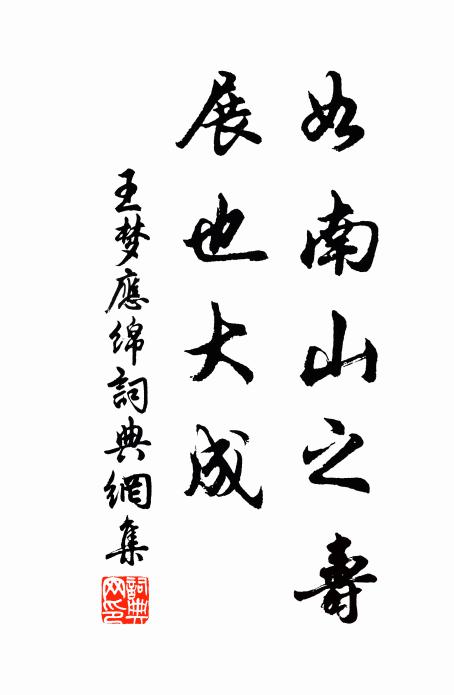 如南山之壽
展也大成
王梦應绵詞典網集
詞典网印